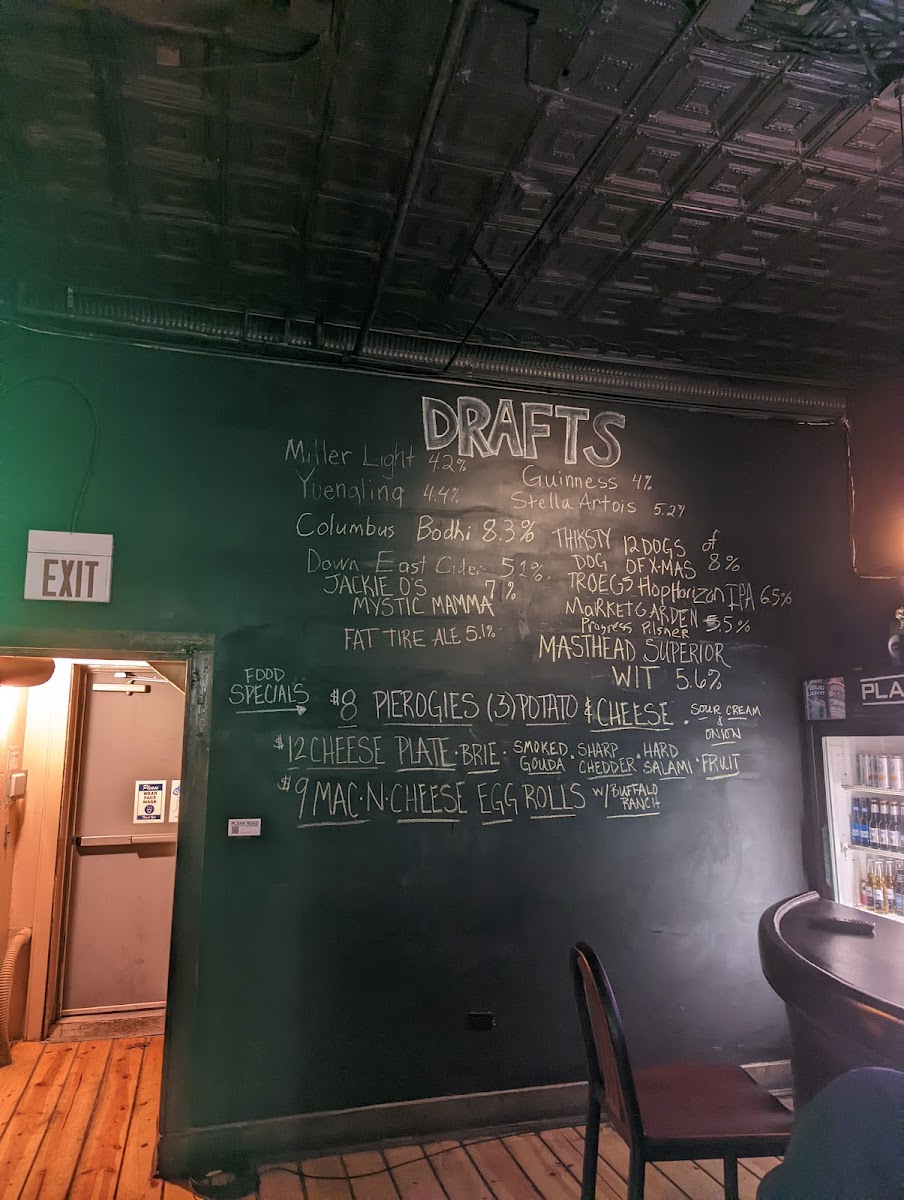 DRAFTS
Miller Light 4.2%
Yuengling 4.4%
Columbus Bodhi 8.3%
Down East Cider 5.1%.
JACKIE O'S 7%
MYSTIC MAMMA
FAT TIRE ALE 5.1%
Guinness 4%
Stella Artois 5.2%
THIRSTY 12 DOGS of
DOG OF X-MAS 8%
TROEGS Hop Horizon IPA 6.5%
MARKET GARDEN
Progress Pilsner 5.5%
MASTHEAD SUPERIOR
WIT 5.6%
EXIT
FOOD
SPECIALS
$8 PIEROGIES (3) POTATO & CHEESE · SOUR CREAM
& ONION
$12 CHEESE PLATE · BRIE · SMOKED GOUDA · SHARP CHEDDER · HARD SALAMI · FRUIT
$9 MAC·N·CHEESE EGG ROLLS W/ BUFFALO
RANCH
Please
WEAR
FACE
MASK
BUD
LIGHT
PLA